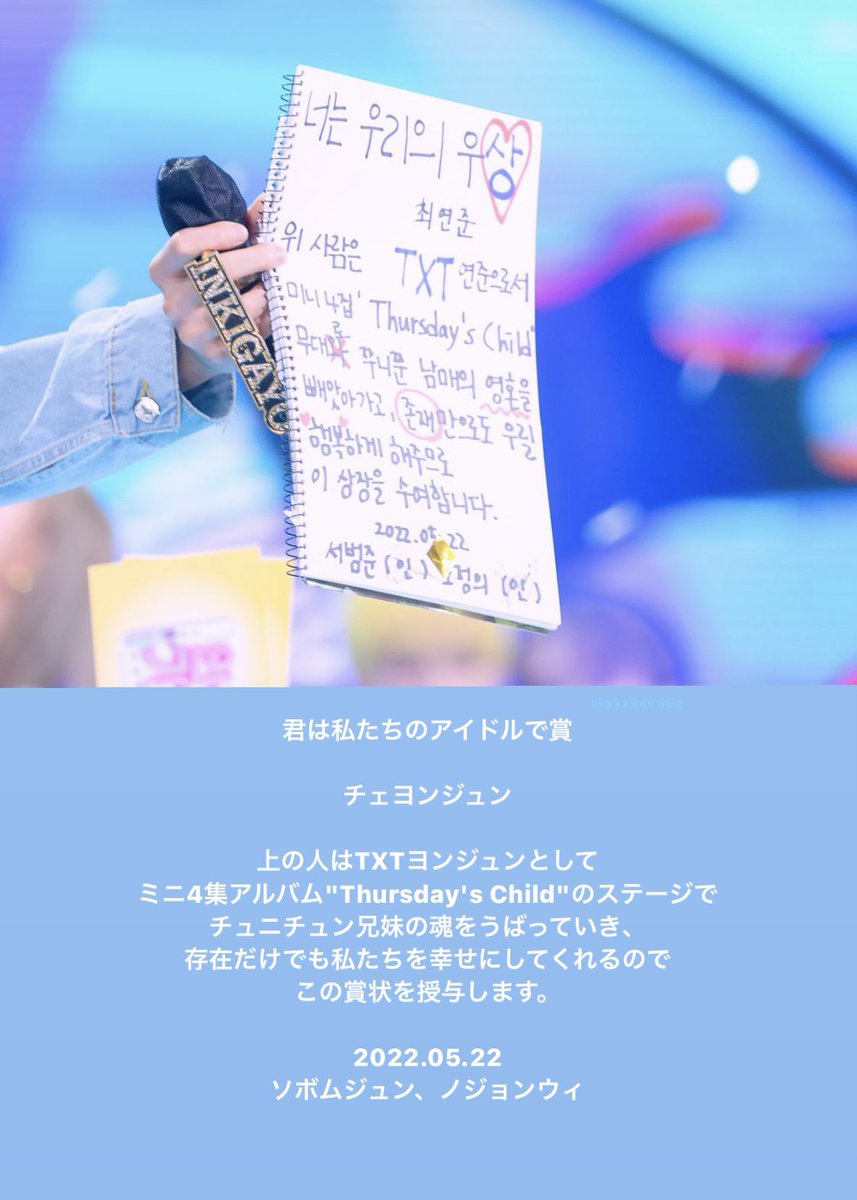 너는 우리의 우상
최연준
위 사람은 TXT 연준으로서
미니 4집 'Thursday's Child'
무대로 쭈니쭌 남매의 영혼을
빼앗아가고, 존재만으로도 우릴
행복하게 해주므로
이 상장을 수여합니다.
2022.05.22
서범준 (인) 노정의 (인)
INKIGAYO
君は私たちのアイドルで賞
チェヨンジュン
上の人はTXTヨンジュンとして
ミニ4集アルバム"Thursday's Child"のステージで
チュニチュン兄妹の魂をうばっていき、
存在だけでも私たちを幸せにしてくれるので
この賞状を授与します。
2022.05.22
ソボムジュン、ノジョンウィ